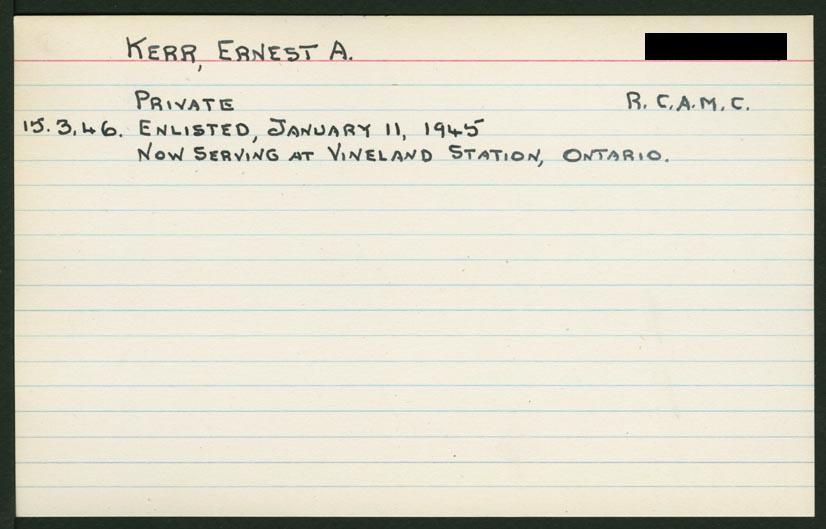 KERR, ERNEST A.
PRIVATE R.C.A.M.C.
15.3.46. ENLISTED, JANUARY 11, 1945
NOW SERVING AT VINELAND STATION, ONTARIO.